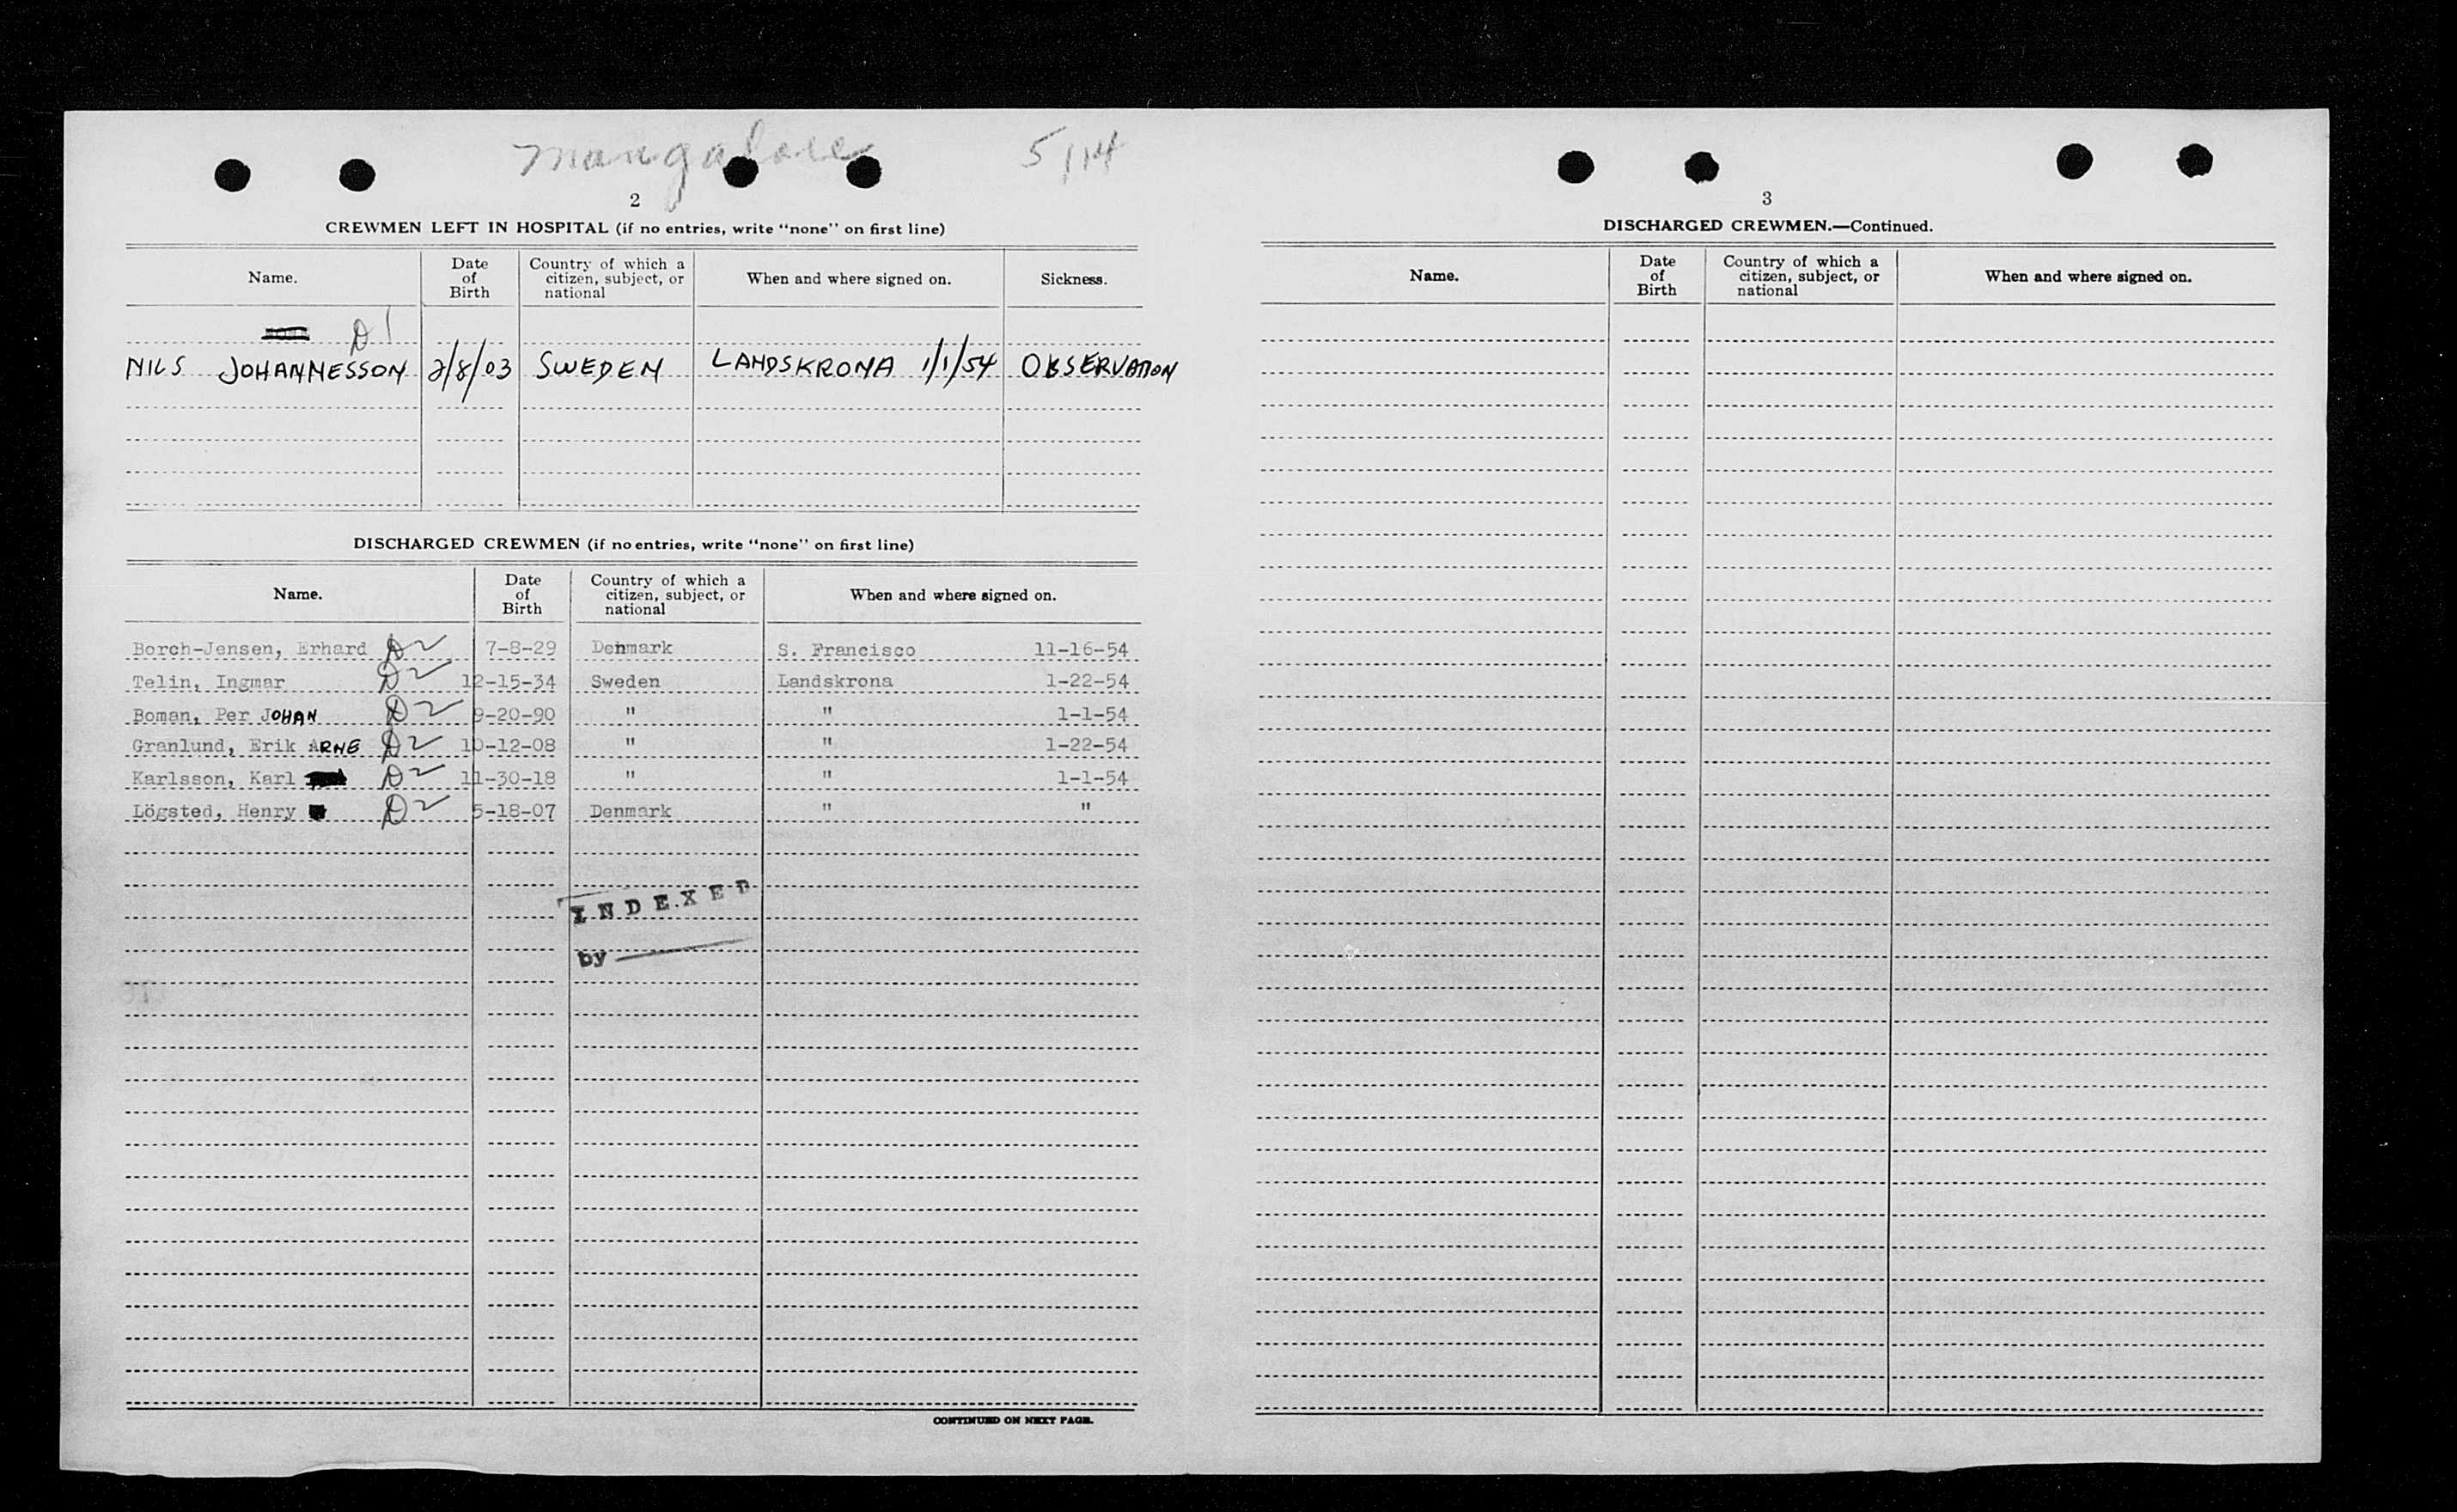 Mangalore 5/14
2
CREWMEN LEFT IN HOSPITAL (if no entries, write "none" on first line)
Name. Date of Birth Country of which a citizen, subject, or national When and where signed on. Sickness.
D1
NILS JOHANNESSON 2/8/03 SWEDEN LANDSKRONA 1/1/54 OBSERVATION
DISCHARGED CREWMEN (if no entries, write "none" on first line)
Name. Date of Birth Country of which a citizen, subject, or national When and where signed on.
Borch-Jensen, Erhard D2 7-8-29 Denmark S. Francisco 11-16-54
Telin, Ingmar D2 12-15-34 Sweden Landskrona 1-22-54
Boman, Per JOHAN D2 9-20-90 " " 1-1-54
Granlund, Erik ARNE D2 10-12-08 " " 1-22-54
Karlsson, Karl D2 11-30-18 " " 1-1-54
Lögsted, Henry D2 5-18-07 Denmark " "
INDEXED
by
CONTINUED ON NEXT PAGE.
3
DISCHARGED CREWMEN.—Continued.
Name. Date of Birth Country of which a citizen, subject, or national When and where signed on.